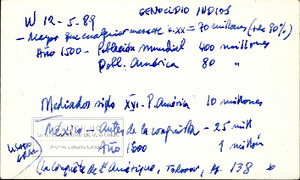 GENOCIDIO INDIOS
W 12-5-89
- Mayor que cualquier s. XX = 70 millones (+ de 80%)
Año 1500 - Población mundial 400 millones
Pobl. América 80 "
Mediados siglo XVI - P. América 10 millones
México - antes de la conquista - 25 mill
Año 1600 1 millón
USADO
(La conquista de América, Todorov, pg. 138